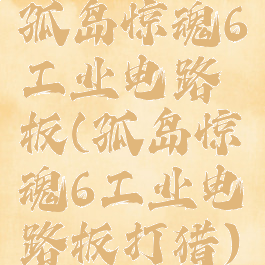 孤岛惊魂6
工业电路
板(孤岛惊
魂6工业电
路板打猎)